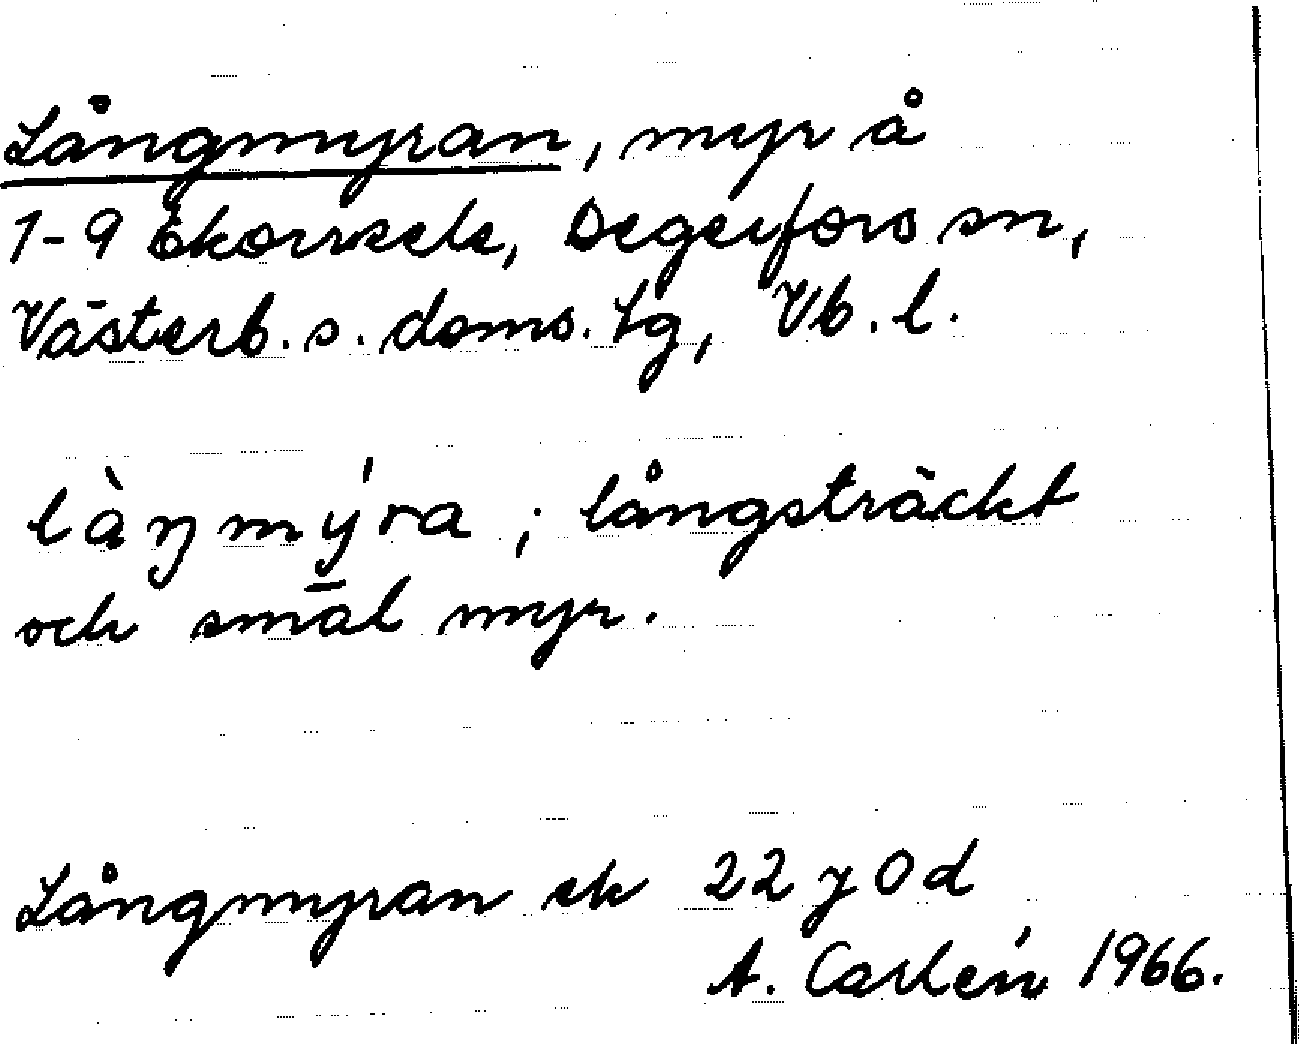 Långmyran, myr å
1-9 Ekorrsele, Degerfors sn,
Västerb. s. doms. tg, Vb. l.
làŋmýra ; långsträckt
och smal myr.
Långmyran ek 22 y 0 d
A. Carlén 1966.